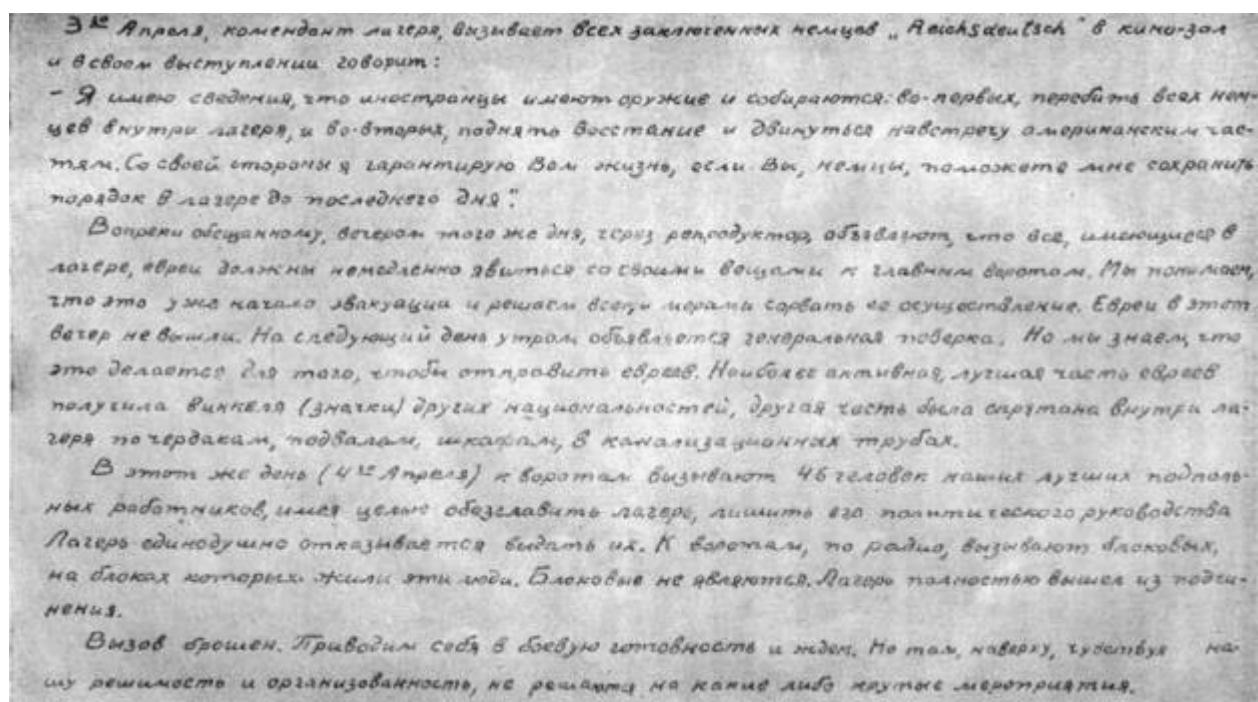 3го Апреля, комендант лагеря, вызывает всех заключенных немцев „Reichsdeutsch" в кино-зал
и в своем выступлении говорит:
- Я имею сведения, что иностранцы имеют оружие и собираются: во-первых, перебить всех нем-
цев внутри лагеря, и во-вторых, поднять восстание и двинуться навстречу американским час-
тям. Со своей стороны я гарантирую Вам жизнь, если Вы, немцы, поможете мне сохранить
порядок в лагере до последнего дня".
Вопреки обещанному, вечером того же дня, через репродуктор, объявляют, что все, имеющиеся в
лагере, евреи должны немедленно явиться со своими вещами к главным воротам. Мы понимаем,
что это уже начало эвакуации и решаем всеми мерами сорвать ее осуществление. Евреи в этот
вечер не вышли. На следующий день утром объявляется генеральная поверка. Но мы знаем, что
это делается для того, чтобы отправить евреев. Наиболее активная, лучшая часть евреев
получила винкеля (значки) других национальностей, другая часть была спрятана внутри ла-
геря по чердакам, подвалам, шкафам, в канализационных трубах.
В этот же день (4го Апреля) к воротам вызывают 46 человек наших лучших подполь-
ных работников, имея целью обезглавить лагерь, лишить его политического руководства
Лагерь единодушно отказывается выдать их. К воротам, по радио, вызывают блоковых,
на блоках которых жили эти люди. Блоковые не являются. Лагерь полностью вышел из подчи-
нения.
Вызов брошен. Приводим себя в боевую готовность и ждем. Но там, наверху, чувствуя на-
шу решимость и организованность, не решаются на какие либо крутые мероприятия.